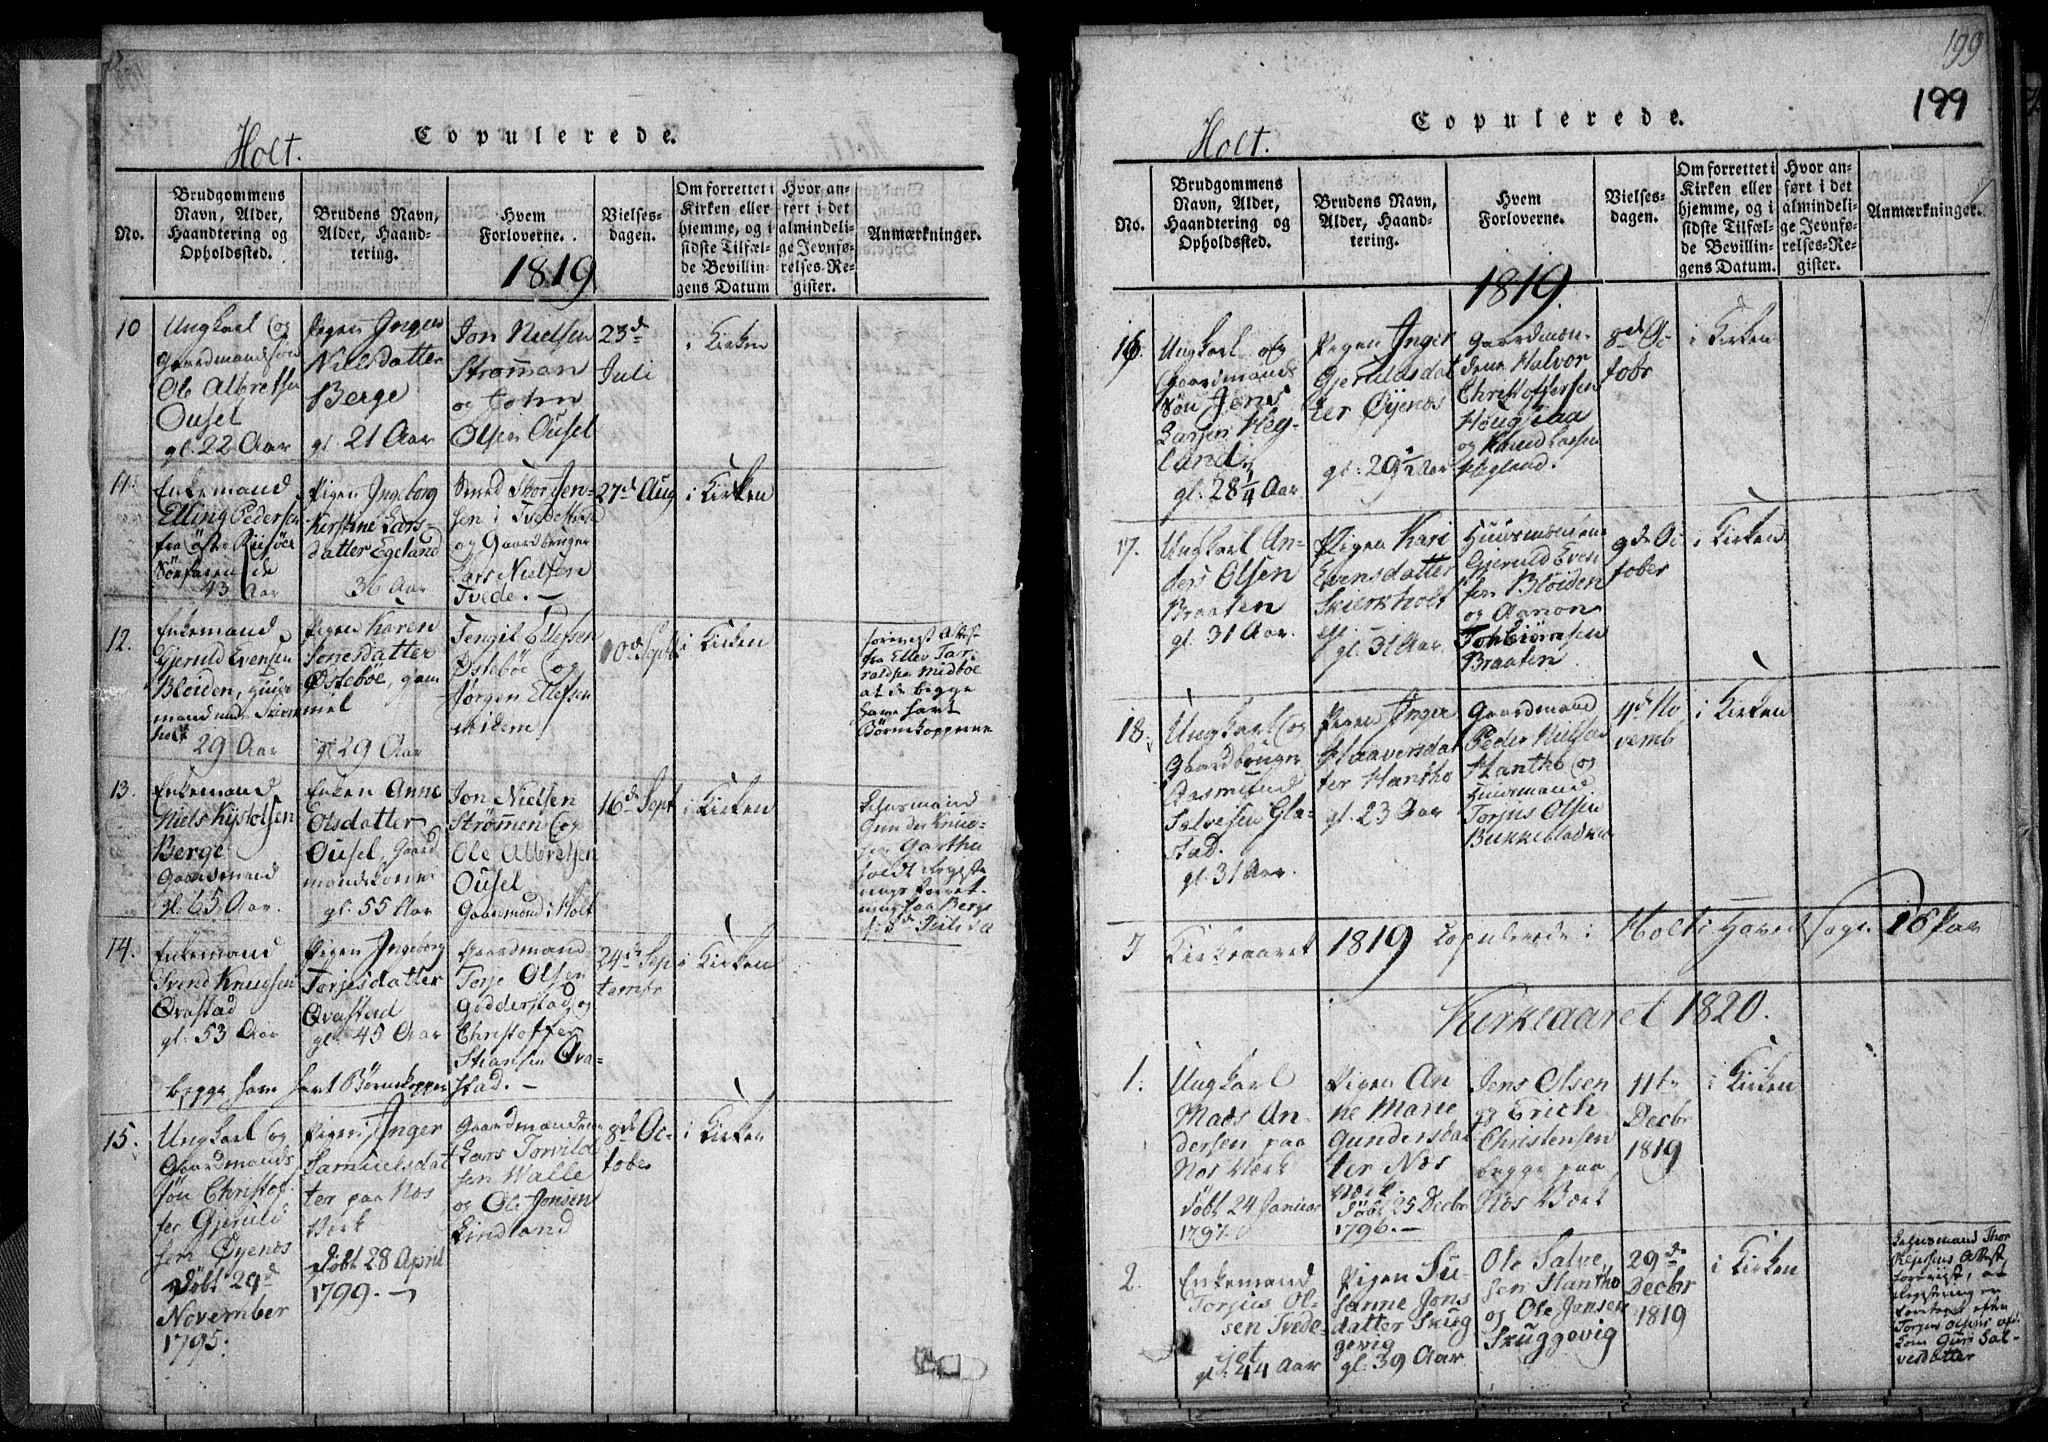 Holt.
Copulerede.
No.
Brudgommens Navn, Alder, Haandtering og Opholdssted.
Brudens Navn, Alder, Haandtering.
Hvem Forloverne.
Vielses-dagen.
Om forrettet i Kirken eller hjemme, og i sidste Tilfælde Bevillingens Datum
Hvor anført i det almindelige Jevnførelses-Register.
Anmærkninger.
1819
10
Ungkarl og
Gaardmandssøn
Ole Albretsen
Ousel
gl. 22 Aar
Pigen Inger
Nielsdatter
Berge
gl. 21 Aar
Jon Nielsen
Strømman
og John
Olsen Ousel
23d
Juli
i Kirken
11.
Enkemand
Elling Pedersen
fra Øster Riisøer
Søefarende
43 Aar
Pigen Ingeborg
Kirstine Lars-
datter Egeland
36 Aar
Smed Thor Jen-
sen i Tvedestrand
og Gaardbruger
Lars Nielsen
Tvede. —
27d Aug
i Kirken
12.
Enkemand
Gjeruld Evensen
Bloiden, Huus
mand under Skierk
holt
29 Aar
Pigen Karen
Jonesdatter
Østeböe, gam
mel
gl 29 Aar
Tengil Ellefsen
Østebøe og
Jørgen Ellefsen
ibidem
10de Sept
i Kirken
foreviist Attest
fra Ellev Tar-
raldsen Midböe
at de begge
have havt
Børnekopperne
13.
Enkemand
Niels Kistolsen
Berge
Gaardmand
gl. 65 Aar.
Enken Anne
Olsdatter
Ousel, Gaard
mandskone
gl. 55 Aar
Jon Nielsen
Strømmen og
Ole Albretsen
Ousel
Gaardmænd i Holt
16de Sept
i Kirken
Lensmand
Gunder Knud-
sen Gartha
holdt Registe
rings Forret-
ning paa Berge
14.
Enkemand
Svend Knudsen
Øvastad
gl. 53 Aar
Pigen Ingeborg
Torjesdatter
Øvastad
gl. 45 Aar
Gaardmand
Torje Olsen
Godderstad og
Christoffer
Stiansen Øva-
stad. —
24de Sep
tember
i Kirken
begge have havt Børnekopper
15.
Ungkarl og
Gaardmands
søn Christof
fer Gjeruld
sen Øyenes
Døbt 29d
November
1795.
Pigen Inger
Samuelsdat
ter paa Nes
Verk
Døbt 28 April
1799. —
Gaardmændene
Lars Torvild
sen Walle
og Ole Jensen
Lindland
8de Oc-
tober
i Kirken
199
199
Holt.
Copulerede.
No.
Brudgommens Navn, Alder, Haandtering og Opholdssted.
Brudens Navn, Alder, Haandtering.
Hvem Forloverne.
Vielses-dagen.
Om forrettet i Kirken eller hjemme, og i sidste Tilfælde Bevillingens Datum.
Hvor anført i det almindelige Jevnførelses-Register.
Anmærkninger.
1819.
16.
Ungkarl og
Gaardmands
Søn Jens
Larsen Heg-
land
gl. 28 1/4 Aar
Pigen Inger
Gjeruldsdat
ter Øyenes
gl: 29 1/2 Aar
Gaardmæn-
dene Halvor
Christoffersen
Hougstaa
og Knud Larsen
Hegland.
8de Oc
tobr
i Kirken
17.
Ungkarl An-
ders Olsen
Braaten
gl. 31 Aar.
Pigen Kari
Evensdatter
Skierkholt
gl. 31 Aar
Huusmændene
Gjeruld Even
sen Bloiden
og Aanon
Torbiørnsen
Braaten
9de Oc
tober
i Kirken
18.
Ungkarl og
Gaardbruger
Aasmund
Salvesen Gla-
stad.
gl. 31 Aar.
Pigen Inger
Haaversdat
ter Hantho
gl. 23 Aar
Gaardmand
Peder Nielsen
Hantho og
Huusmand
Torjus Olsen
4de No
vemb
i Kirken
I Kirkeaaret 1819 Copulerede i Holts Hoved Sogn 18 Par
Kirkeaaret 1820.
1.
Ungkarl
Mads An-
dersen paa
Nes Verk
Døbt 24 Januar
1797.
Pigen An
ne Marie
Gundersdat
ter Nes
Værk.
Døbt 25 Decbr
1796. —
Jens Olsen
og Erich
Christensen
begge paa
Nes Værk
11te
Decbr
1819
i Kirken
2.
Enkemand
Torjus Ol-
sen Tvede-
jet
gl. 44 Aar
Pigen Su-
sanne Jons
datter Skug
gevig
gl. 39 Aar
Ole Salve
sen Hantho
og Ole Jansen
Skuggevig
29de
Decbr
1819
i Kirken
Lensmand Thor
Attest
foreviist, at
Registering er
foretaget efter
Torjus Olsens af.
Kone Guri Sal-
vesdatter